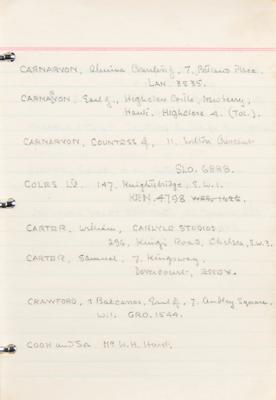 CARNARVON, Almina Countess of, 7, Portland Place.
LAN. 3535.
CARNARVON, Earl of, Highclere Castle, Newberry,
Hants. Highclere 4. (Tel.)
CARNARVON, COUNTESS of, 11, Wilton Crescent
SLO. 6888.
COLES Ltd. 147, Knightsbridge, S.W.1.
KEN. 4798
CARTER, William, CARLYLE STUDIOS,
296, King's Road, Chelsea, S.W.3.
CARTER, Samuel, 7, Kingsway,
Dovercourt, ESSEX.
CRAWFORD, & Balcarres, Earl of, 7, Audley Square,
W.1. GRO. 1544.
COOK and SN. Mr W.H. Hard.